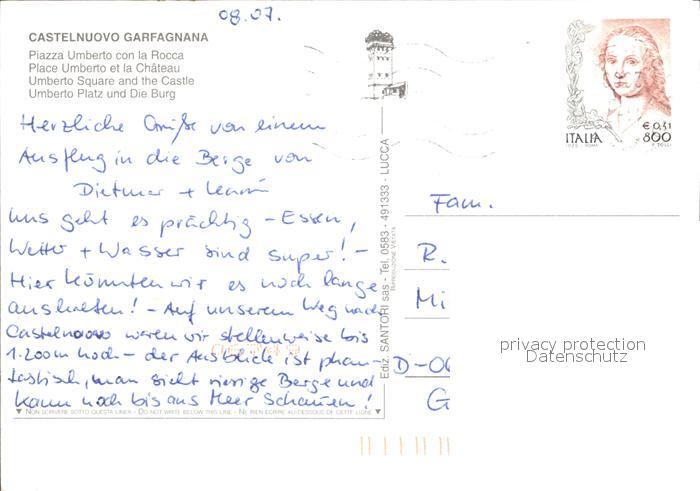 08.07.
CASTELNUOVO GARFAGNANA
Piazza Umberto con la Rocca
Place Umberto et la Château
Umberto Square and the Castle
Umberto Platz und Die Burg
Herzliche Grüße von einem
Ausflug in die Berge von
Dietmar +
Uns geht es prächtig – Essen,
Wetter + Wasser sind super! –
Hier könnten wir es noch lange
aushalten! – Auf unserem Weg nach
Castelnuovo waren wir stellenweise bis
1.200m hoch – der Ausblick ist phan-
tastisch, man sieht riesige Berge und
kann noch bis ans Meer schauen!
▼ NON SCRIVERE SOTTO QUESTA LINEA - DO NOT WRITE BELOW THIS LINE - NE RIEN ECRIRE AU-DESSOUS DE CETTE LIGNE ▼
Ediz. SANTORI sas - Tel. 0583 - 491333 - LUCCA
RIPRODUZIONE VIETATA
€ 0,41
ITALIA 800
Fam.
R.
Mi
D-06
G
privacy protection
Datenschutz